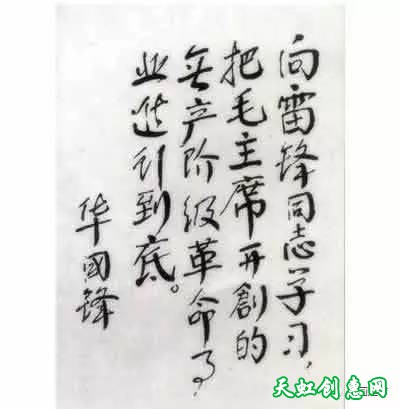 向雷锋同志学习，
把毛主席开創的
無产阶级革命事
业進行到底。
华國锋
天虹创意网